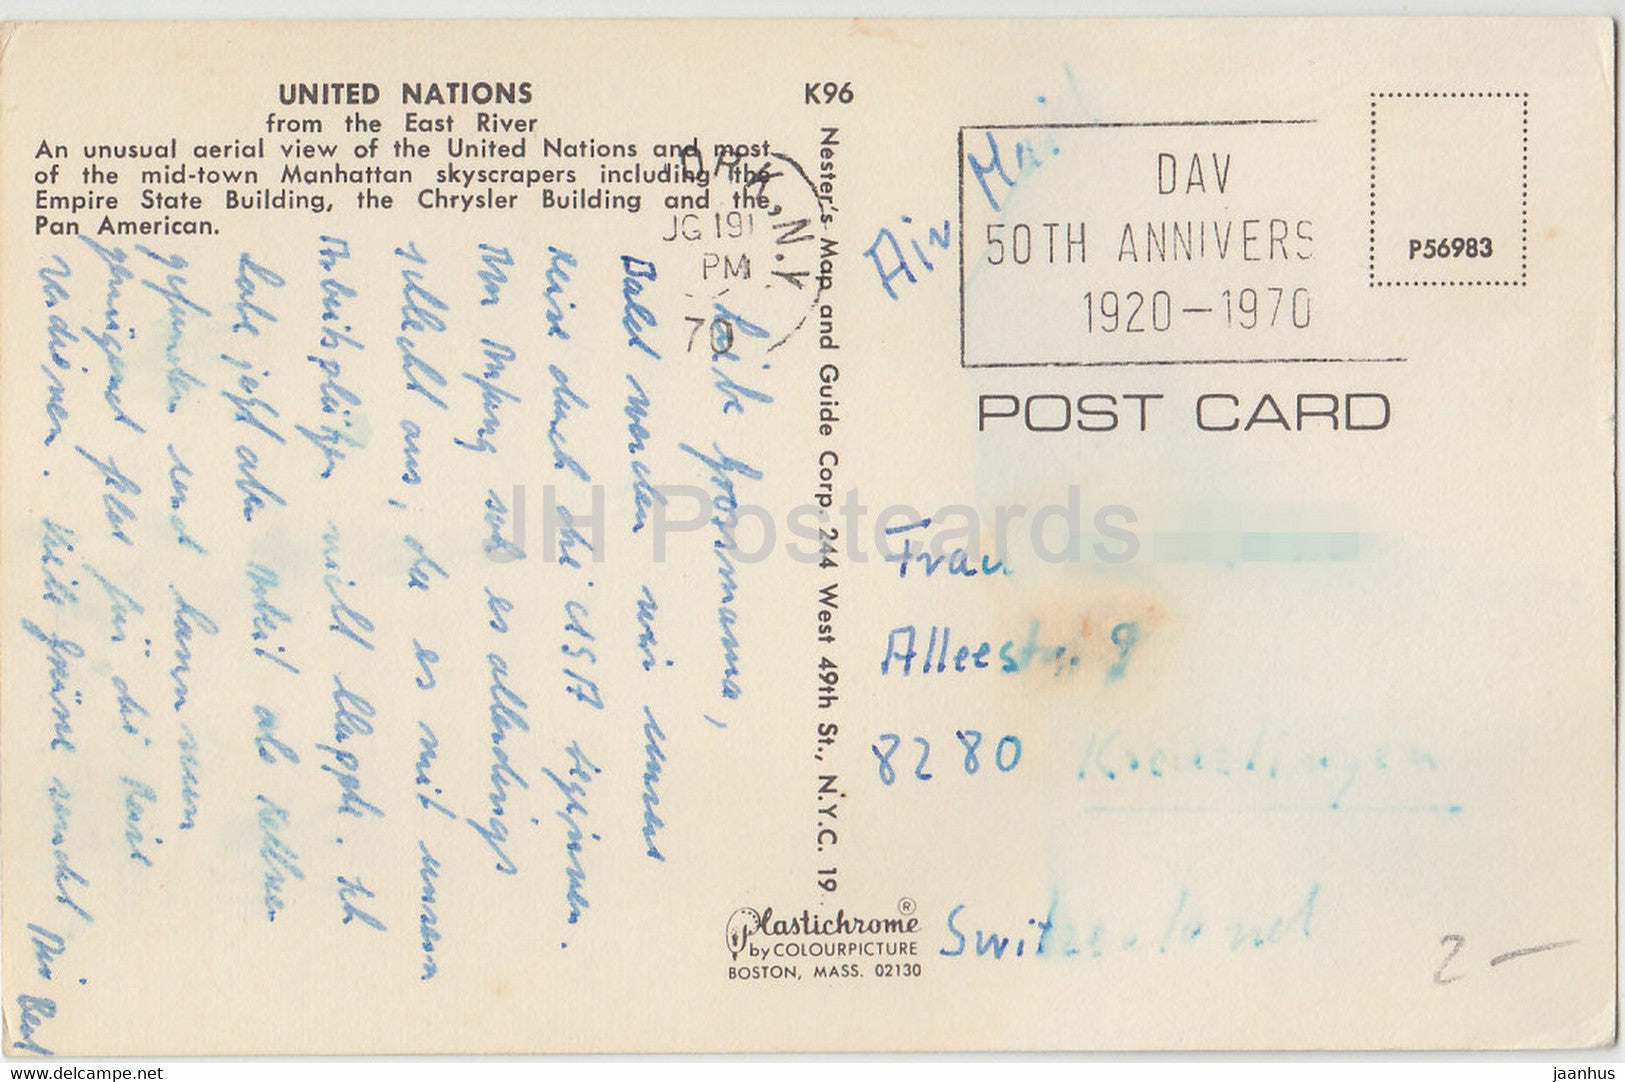 UNITED NATIONS
from the East River
An unusual aerial view of the United Nations and most
of the mid-town Manhattan skyscrapers including the
Empire State Building, the Chrysler Building and the
Pan American.
K96
Nester's Map and Guide Corp. 244 West 49th St., N.Y.C. 19
N.Y.
PM
70
Air Mail
DAV
50TH ANNIVERS
1920-1970
P56983
POST CARD
Liebe Grossmama,
Bald werden wir unsere
Reise durch die USA beginnen.
Am Anfang sah es allerdings
schlecht aus, da es mit unsern
Arbeitsplätzen nicht klappte. Ich
habe jetzt aber Arbeit als Kellner
gefunden und kann nun
genügend Geld für die Reise
verdienen. Viele Grüsse sendet Dir Beat
Frau
Alleestr. 9
8280 Kreuzlingen
Switzerland
Plastichrome ®
by COLOURPICTURE
BOSTON, MASS. 02130
2 -
JH Postcards
delcampe.net
jaanhus